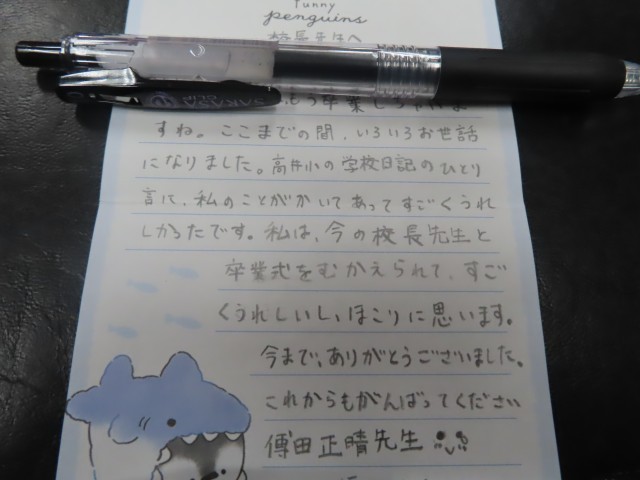 funny
penguins
校長先生へ
もう卒業しちゃいま
すね。ここまでの間、いろいろお世話
になりました。高井小の学校日記のひとり
言に、私のことがかいてあってすごくうれ
しかったです。私は、今の校長先生と
卒業式をむかえられて、すご
くうれしいし、ほこりに思います。
今まで、ありがとうございました。
これからもがんばってください
傅田正晴先生